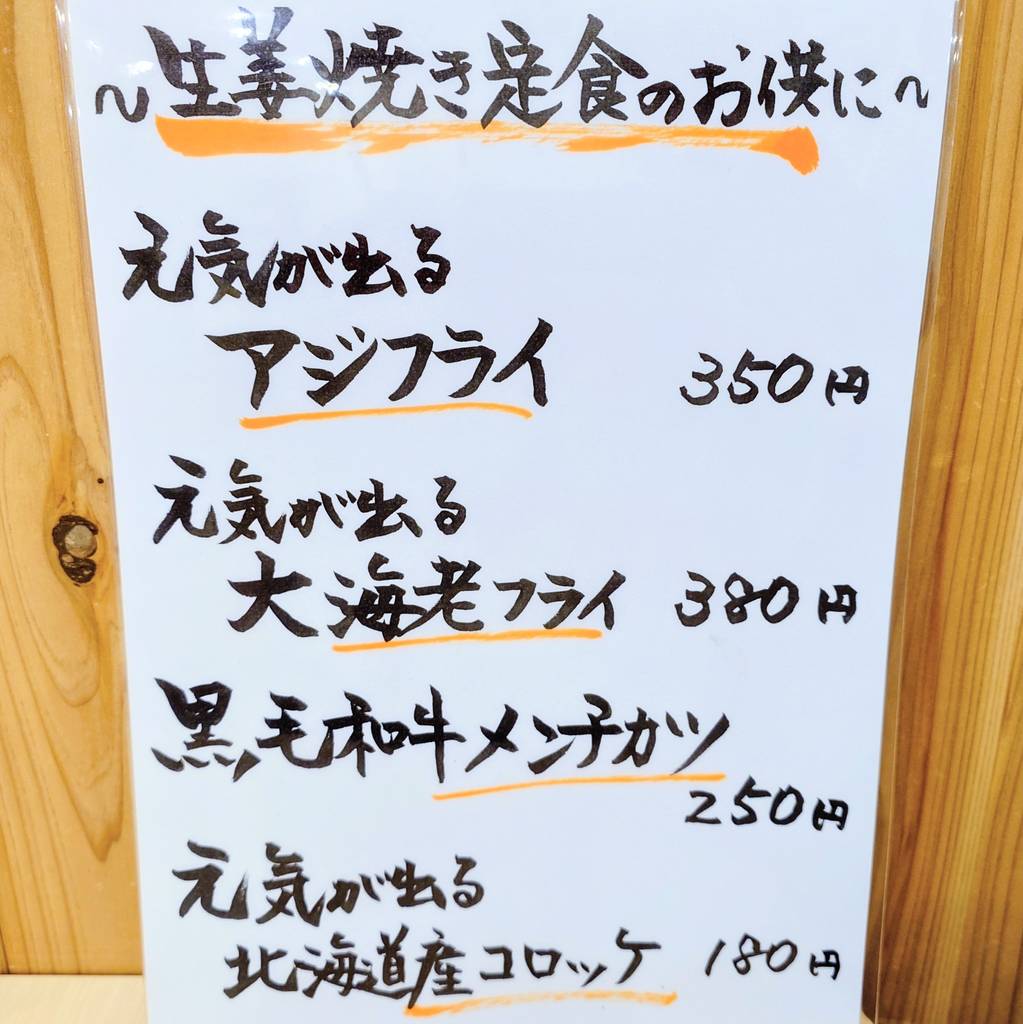 ～生姜焼き定食のお供に～
元気が出る
アジフライ 350円
元気が出る
大海老フライ 380円
黒毛和牛メンチカツ
250円
元気が出る
北海道産コロッケ 180円